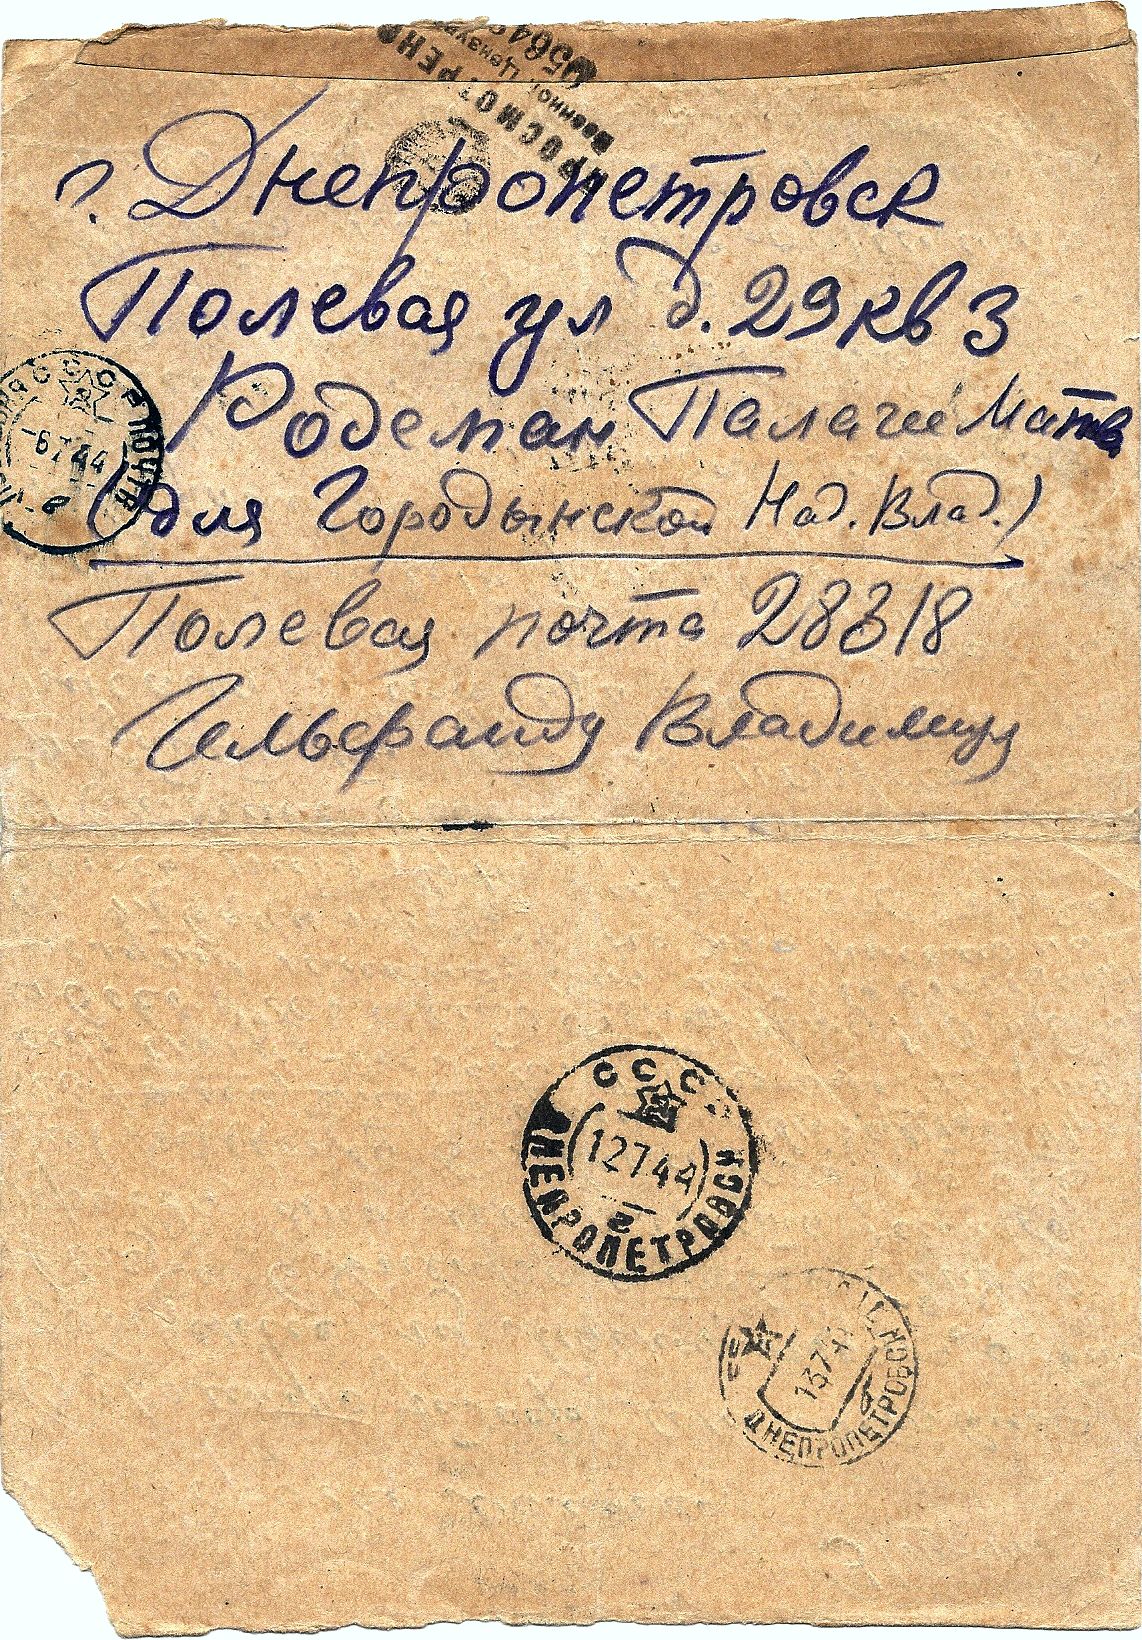 ПРОСМОТРЕНО
Военной Цензурой
г. Днепропетровск
Полевая ул д. 29 кв 3
Родеман Палагеи Матв
(для Городынской Над. Влад.)
Полевая почта 28318
Гельфанду Владимиру
СССР ПОЧТА
-6 7 44
СССР
12 7 44
2
ДНЕПРОПЕТРОВСК
13 7 44
ДНЕПРОПЕТРОВСК